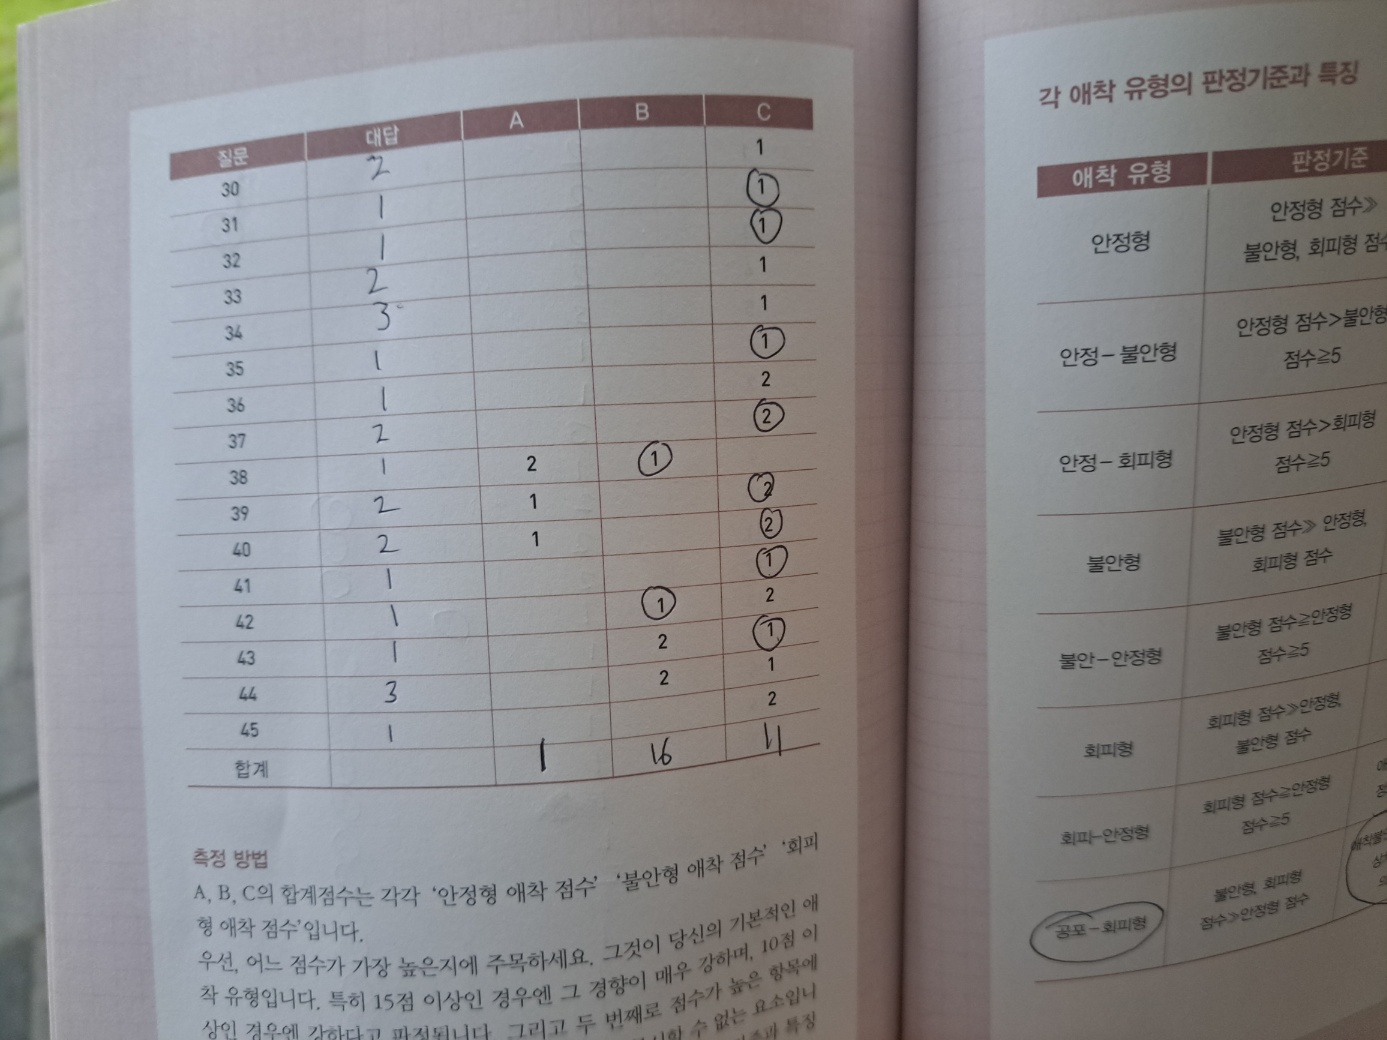 질문 대답 A B C
30 2 1
31 1 1
32 1 1
33 2 1
34 3 1
35 1 1
36 1 2
37 2 2
38 1 2 1
39 2 1 2
40 2 1 2
41 1 1
42 1 1 2
43 1 2 1
44 3 2 1
45 1 2
합계 1 16 11
측정 방법
A, B, C의 합계점수는 각각 ‘안정형 애착 점수’ ‘불안형 애착 점수’ ‘회피
형 애착 점수’입니다.
우선, 어느 점수가 가장 높은지에 주목하세요. 그것이 당신의 기본적인 애
착 유형입니다. 특히 15점 이상인 경우엔 그 경향이 매우 강하며, 10점 이
상인 경우엔 강하다고 판정됩니다. 그리고 두 번째로 점수가 높은 항목에
수 없는 요소입니
특징
각 애착 유형의 판정기준과 특징
애착 유형 판정기준
안정형 안정형 점수≫
불안형, 회피형
안정-불안형 안정형 점수>불안형
점수≧5
안정-회피형 안정형 점수>회피형
점수≧5
불안형 불안형 점수≫ 안정형,
회피형 점수
불안-안정형 불안형 점수≧안정형
점수≧5
회피형 회피형 점수≫안정형,
불안형 점수
회피-안정형 회피형 점수≧안정형
점수≧5
공포-회피형 불안형, 회피형
점수≫안정형 점수